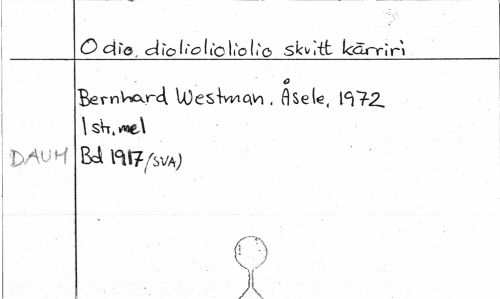 O dio, dioliolioliolio skvitt kärriri
Bernhard Westman. Åsele, 1972
1 str, mel
DAUM Bd 1917/(SVA)